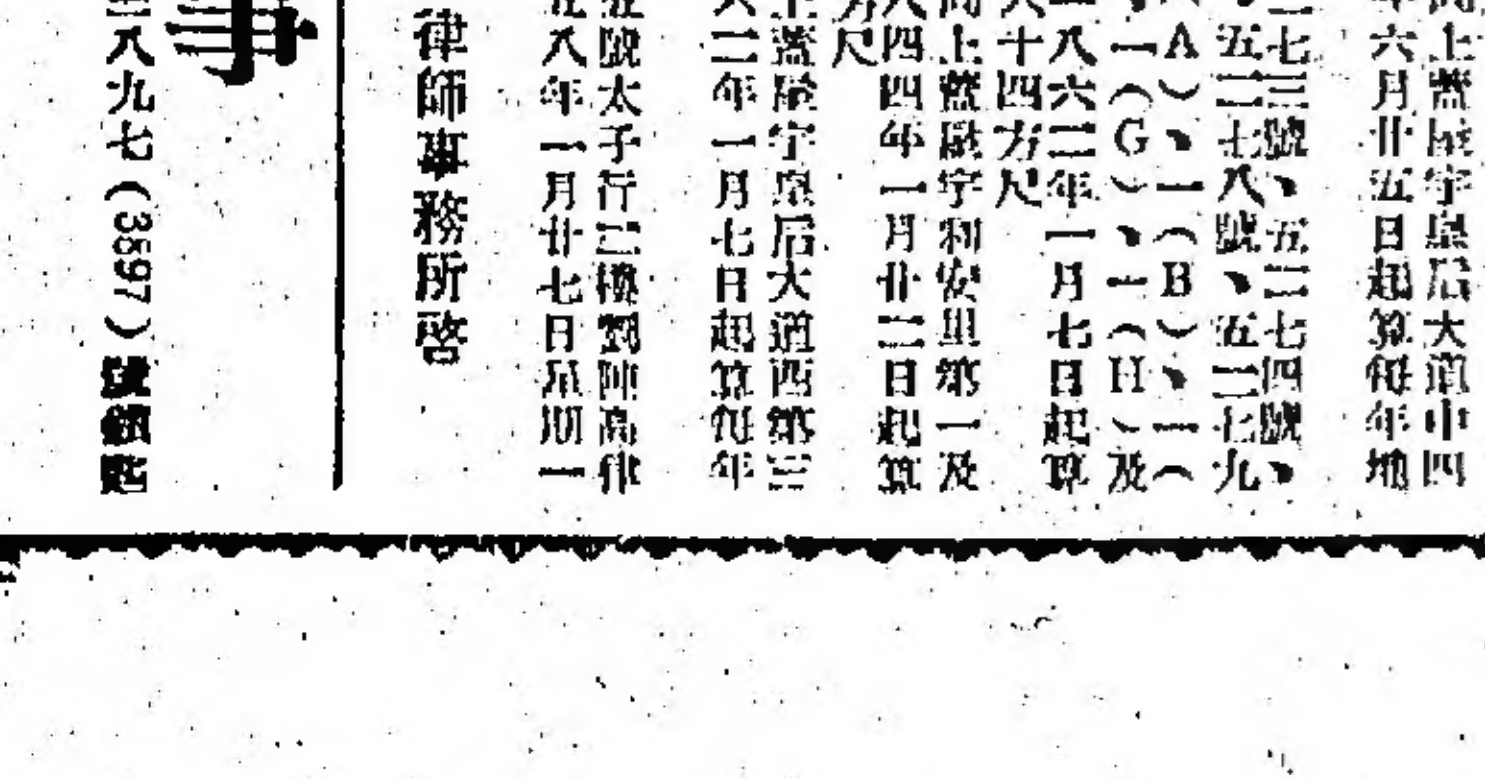 同上蓋屋宇皇后大道中四
年六月廿五日起算每年地
二七三號、五二七四號、
、五二七八號、五二七九
A)、一(B)、一(
、一(G)、一(H)及
一八六二年一月七日起算
六十四方尺
同上蓋屋宇利安里第一及
八四四年一月廿二日起算
方尺
上蓋屋宇皇后大道西第三
六二年一月七日起算每年
號太子行二樓劉陣高律
五八年一月廿七日星期一
律師事務所啓
事
三八九七(3897)號鎖匙